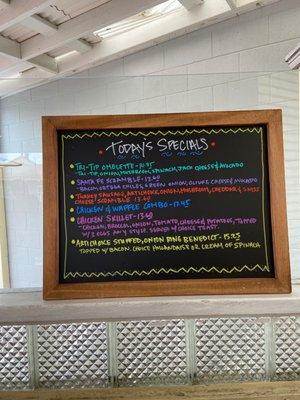 Today's Specials
Tri-Tip Omelette - 
Tri-Tip, Onion, Mushroom, Spinach, Jack Cheese & Avocado
Santa Fe Scramble - 
Bacon, Ortega Chiles, Green Onion, Olives, Cheese, Avocado
Turkey Sausage, Artichoke, Onion, Mushroom, Cheddar & Swiss
Cheese Scramble - 13.50
Chicken & Waffle Combo - 17.95
Chicken Skillet - 13.50
Chicken, Broccoli, Onion, Tomato, Cheese & Potatoes, Topped
w/ 2 Eggs Any Style. Served w/ Choice Toast.
Artichoke Stuffed, Onion Ring Benedict - 15.25
Topped w/ Bacon. Choice Hollandaise or Cream of Spinach